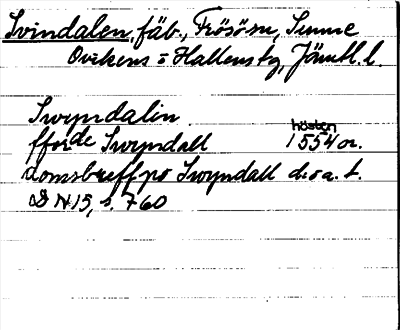 Svindalen, fäb., Frösö sn, Sunne
Ovikens o Hallens tg, Jämtl. l.
Swyndalin
hösten
ffor de Swyndall 1554 or.
domsbreff po Swyndall d:o a. t.
DN 15, s. 760